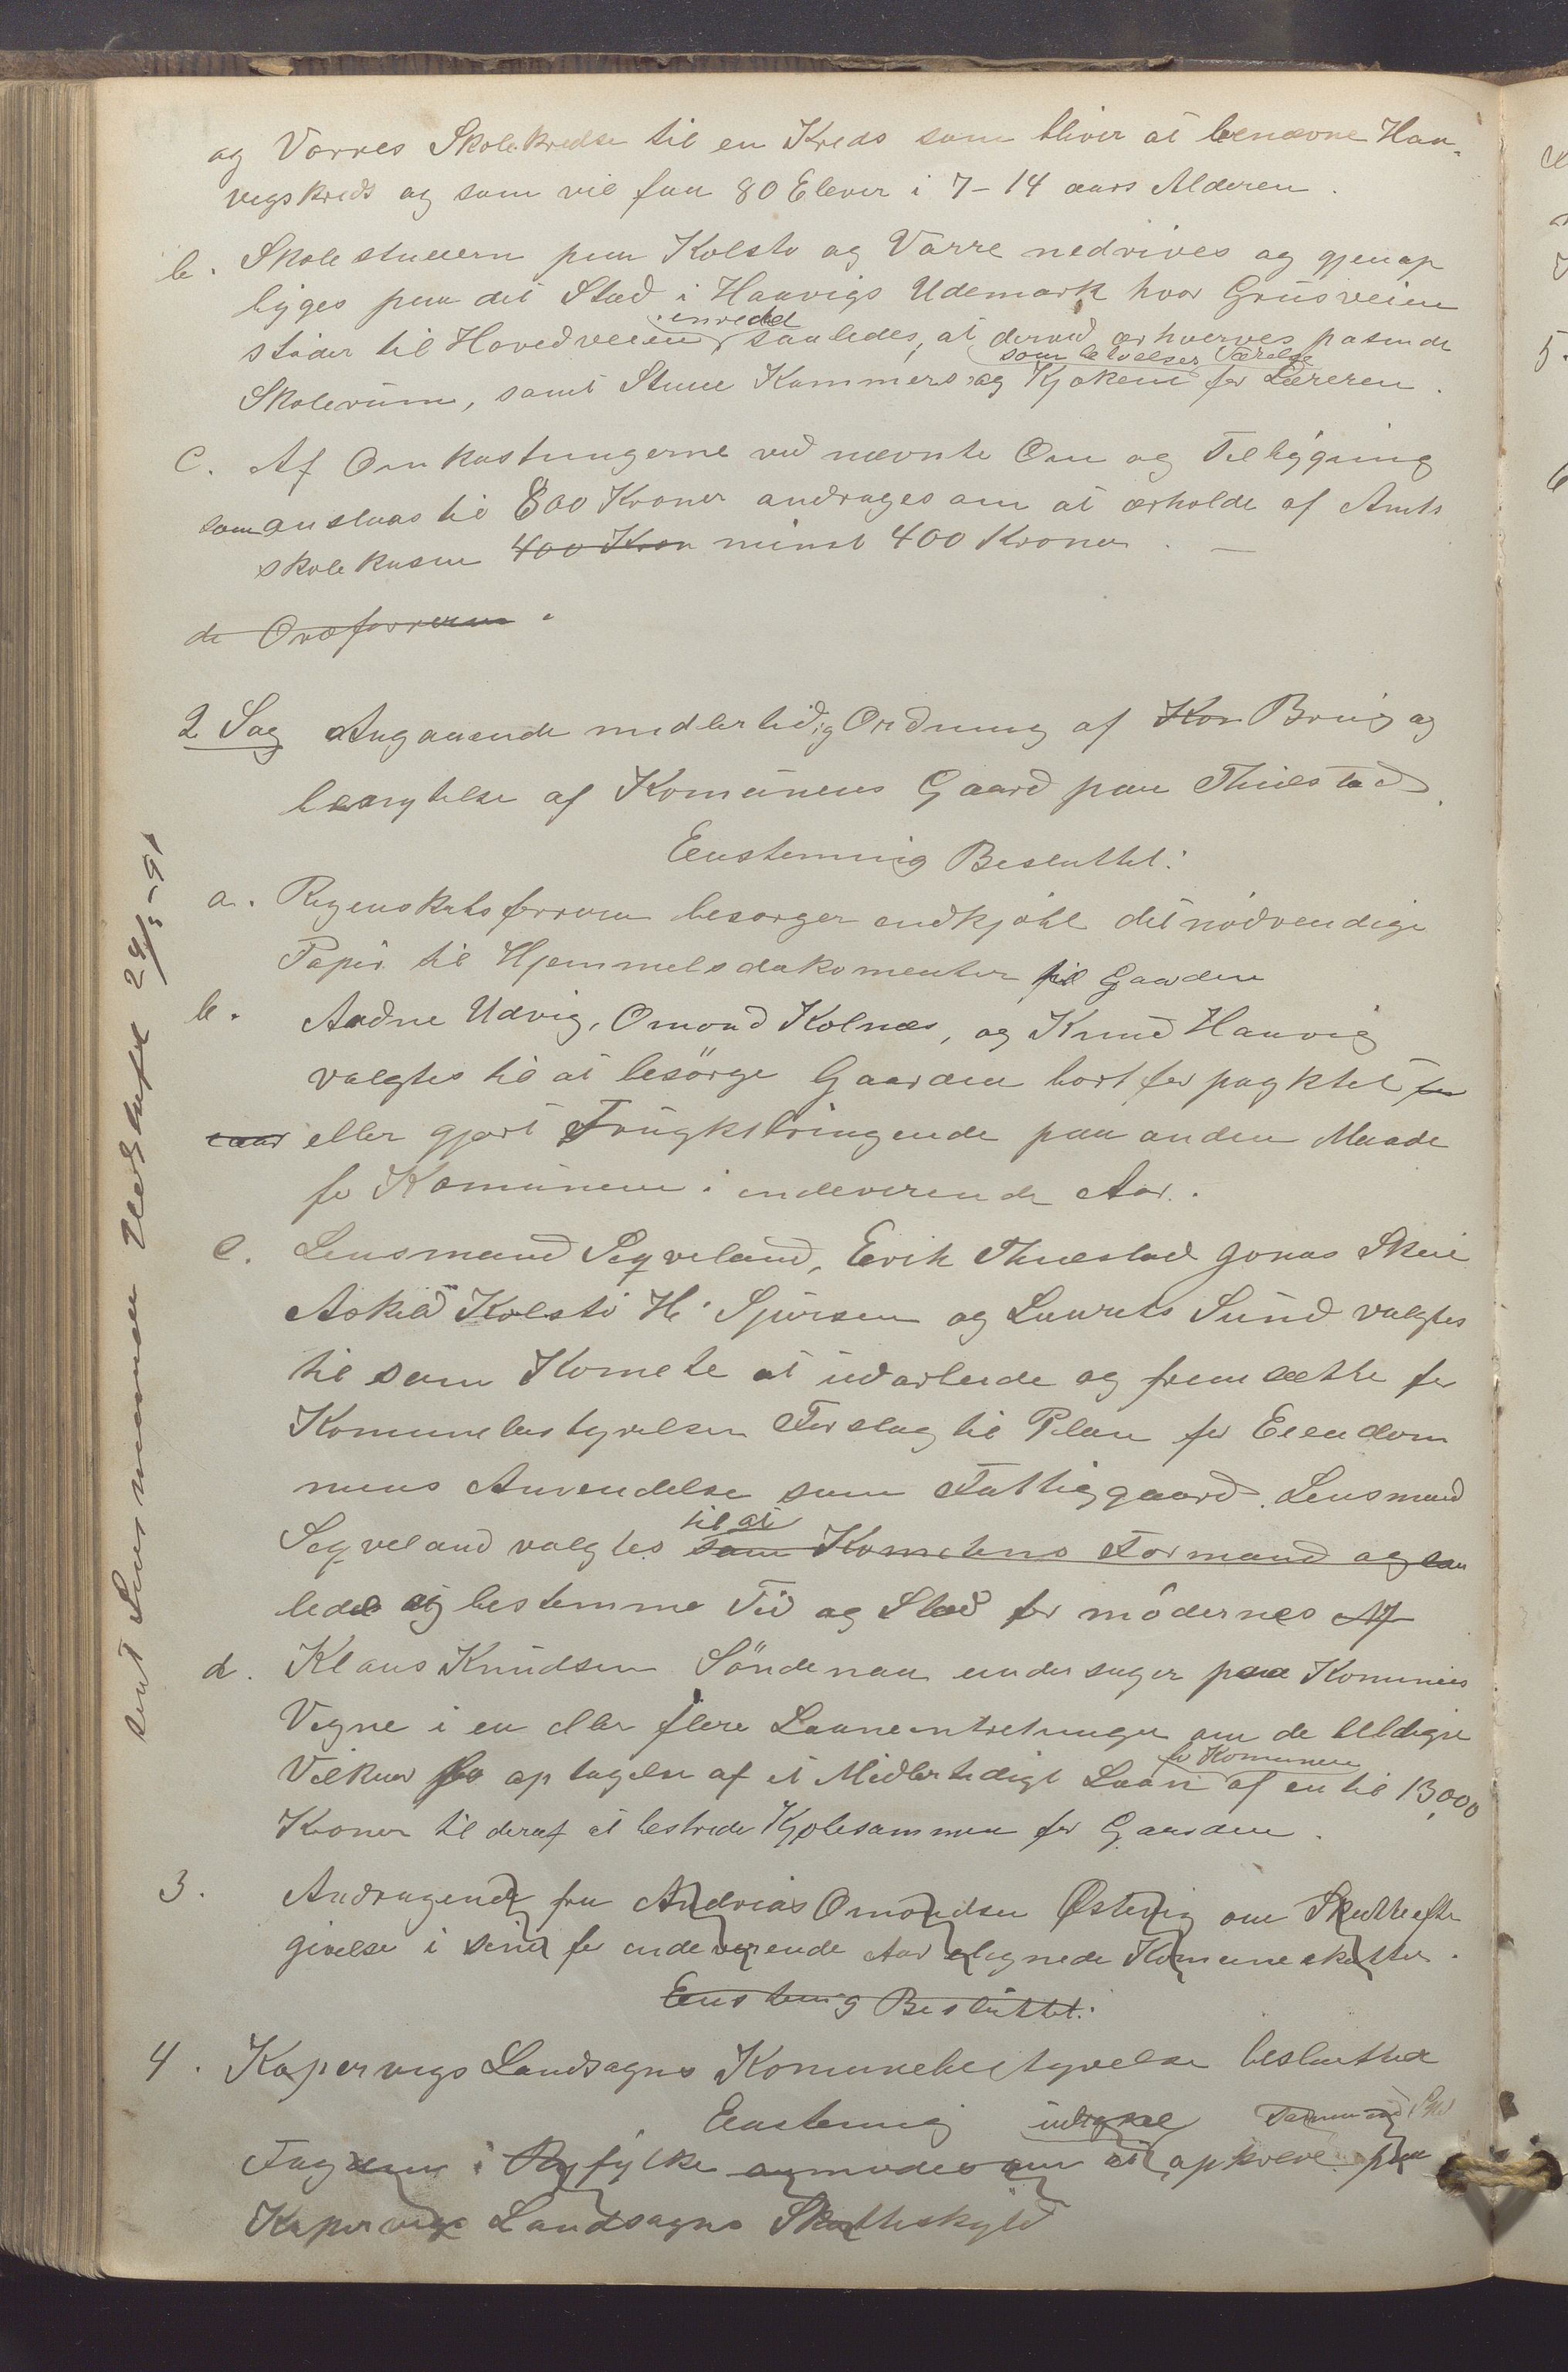 og Vorres Skolekredse til en Kreds som bliver at benævne Haa-
vigskreds og som vil faa 80 Elever i 7-14 aars Alderen.
b. Skolestuerne paa Kolstø og Vorre nedrives og gjenop
bygges paa det Sted i Haavigs Udemark hvor Grusveien
indredet
støder til Hovedveien saaledes, at derved erhverves pasende
som bekvelser Værelse
Skolerum, samt Stue Kammers og Kjøken for Læreren.
C. Af Omkostningerne ved nævnte Om og Tilbygning
som anslaaes til 800 Kroner andrages om at erholde af Amts
skolekasen 400 Kron minst 400 Kroner. —
de
2 Sag Angaaende midlertidig Ordning af Kom Brug og
benytelse af Komunens Gaard paa Thuestad.
Eenstemmig Besluttet:
a. Regenskabsføreren besørger indkjøbt det nødvendige
Papir til Hjemmelsdokomenter til Gaarden
b. Aadne Udvig, Omond Kolnes, og Knud Haavig
valgtes til at besörge Gaarden bortforpagktet for
eller gjort Frugktbringende paa anden Maade
for Komunen i indeverende Aar.
c. Lensmand Seqveland, Erik Thuestad Jonas Skeie
Askild Kolstö H. Sjursen og Laurits Sund valgtes
til som Komete at udarbeide og fremsætte for
Komunebestyrelsen Forslag til Plan for Eiendom
mens Anvendelse som Fattiggaard. Lensmand
til at
Seqveland valgtes som Kometens Formand og
lede og bestemme Tid og Sted for mödernes Af
d. Klaus Knudsen Söndenaa undersøger paa Komunens
Vegne i en eller flere Laaneindretninger om de billigste
for Komunen
Vilkaar for optagelse af et Midlertidigt Laan af en til 13,000
Kroner til deraf at bestride Kjøbesummen for Gaarden.
3. Andragende fra Andreas Omondsen Østevig om Skatteefter
givelse i sin for indeverende Aar ilignede Komuneskatter.
Eenstemig Besluttet:
4. Kopervigs Landsogns Komunebestyrelse besluttede
Eenstemig
Fogden i Ryfylke anmodes om at opkreve paa
Kopervigs Landsogns Skatteskyld
sent Lensmannen Udskrift 24/5-91